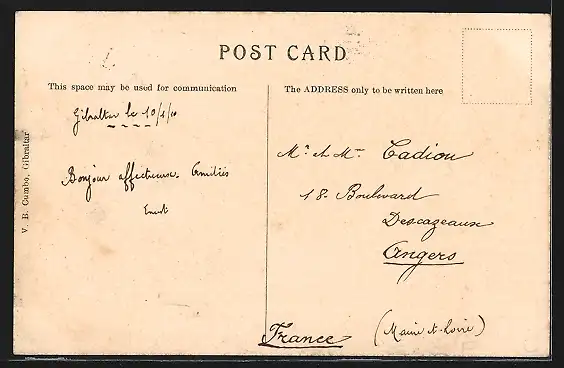 POST CARD
This space may be used for communication
The ADDRESS only to be written here
Gibraltar le 10/4/10
Bonjour affectueux. Amitiés
Ernest
Mr et Mme Cadiou
18 - Boulevard
Descazeaux
Angers
France (Maine et-Loire)
V. B. Cumbo, Gibraltar